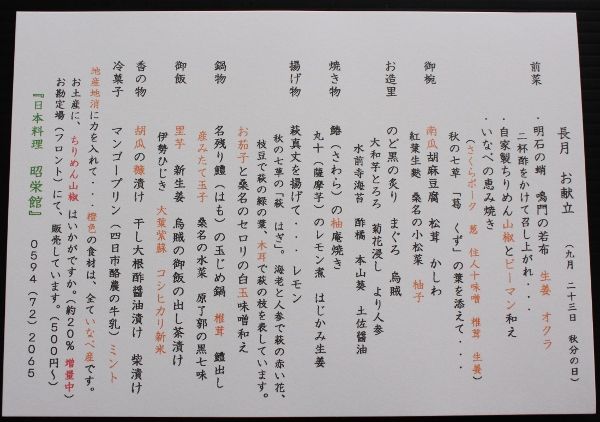 長月　お献立　（九月　二十三日　秋分の日）
前菜　・明石の蛸　鳴門の若布　生姜　オクラ
二杯酢をかけて召し上がれ・・・
・自家製ちりめん山椒とピーマン和え
・いなべの恵み焼き
（さくらポーク　葱　住人十味噌　椎茸　生姜）
秋の七草、「葛　くず」の葉を添えて・・・
御椀　南瓜胡麻豆腐　松茸　かしわ
紅葉生麩　桑名の小松菜　柚子
お造里　のど黒の炙り　まぐろ　烏賊
大和芋とろろ　菊花浸し　より人参
水前寺海苔　酢橘　本山葵　土佐醤油
焼き物　鰆（さわら）の柚庵焼き
丸十（薩摩芋）のレモン煮　はじかみ生姜
揚げ物　萩真丈を揚げて・・・　レモン
秋の七草の「萩　はぎ」。海老と人参で萩の赤い花、
枝豆で萩の緑の葉、木耳で萩の枝を表しています。
お茄子と桑名のセロリの白玉味噌和え
鍋物　名残り鱧（はも）の玉じめ鍋　椎茸　鱧出し
産みたて玉子　桑名の水菜　原了郭の黒七味
御飯　里芋　新生姜　烏賊の御飯の出し茶漬け
伊勢ひじき　大葉紫蘇　コシヒカリ新米
香の物　胡瓜の糠漬け　干し大根酢醤油漬け　柴漬け
冷菓子　マンゴープリン（四日市酪農の牛乳）ミント
地産地消に力を入れて・・・橙色の食材は、全ていなべ産です。
お土産に、ちりめん山椒　はいかがですか。（約20％　増量中）
お勘定場（フロント）にて、販売しています。（500円～）
『日本料理　昭栄館』　0594（72）2065